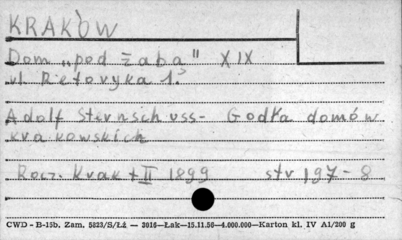 KRAKÓW
Dom „pod żabą" XIX
ul. Retoryka 1.
Adolf Sternschuss - Godła domów
krakowskich
Rocz. Krak t II 1899 str 197-8
CWD - B-15b, Zam. 5823/S/Łź — 3016—Łak—15.11.56—4.000.000—Karton kl. IV A1/200 g